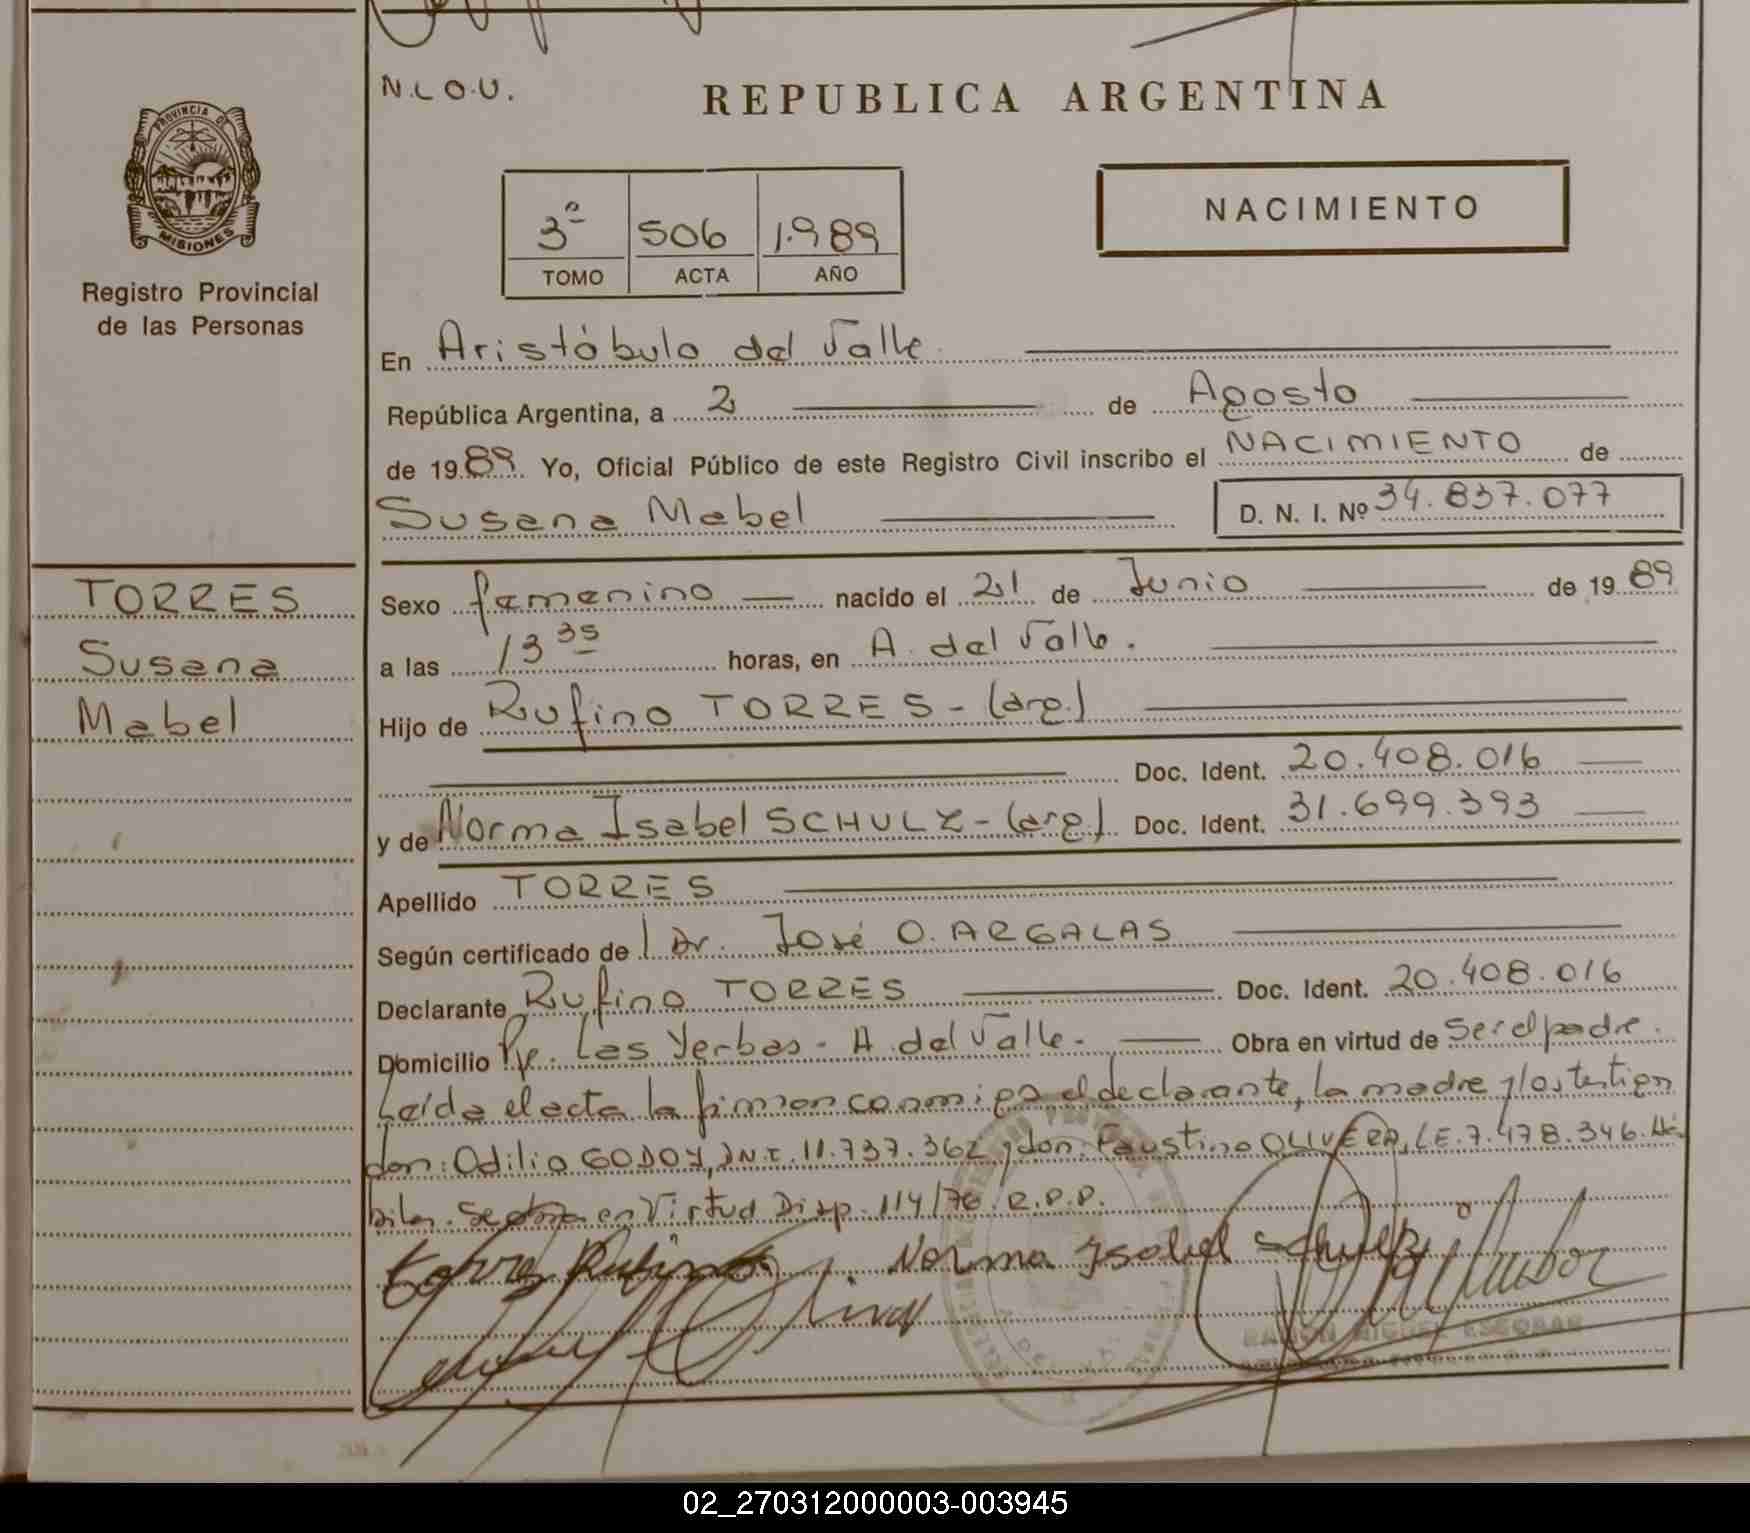 N.L.O.U.
REPUBLICA ARGENTINA
PROVINCIA DE
MISIONES
Registro Provincial
de las Personas
3º 506 1.989
TOMO ACTA AÑO
NACIMIENTO
En Aristóbulo del Valle
República Argentina, a 2 de Agosto
de 1989 Yo, Oficial Público de este Registro Civil inscribo el NACIMIENTO de
Susana Mabel D. N. I. Nº 34.837.077
TORRES
Susana
Mabel
Sexo femenino nacido el 21 de Junio de 1989
a las 13 35 horas, en A. del Valle.
Hijo de Rufino TORRES - (arg.)
Doc. Ident. 20.408.016
y de Norma Isabel SCHULZ - (arg.) Doc. Ident. 31.699.393
Apellido TORRES
Según certificado de l Dr. José O. ARGALAS
Declarante Rufino TORRES Doc. Ident. 20.408.016
Domicilio Pje. Las Yerbas - A. del Valle. Obra en virtud de ser el padre.
Leída el acta la firman conmigo el declarante, la madre y los testigos
don: Odilio GODOY, D.N.I. 11.737.362 y don: Faustino OLIVERA, L.E. 7.478.346. Há-
biles. Se obra en Virtud Disp. 114/76. R.P.P.
Torres Rufino Norma Ysabel Schulz
RAMON MIGUEL ESCOBAR
02_270312000003-003945